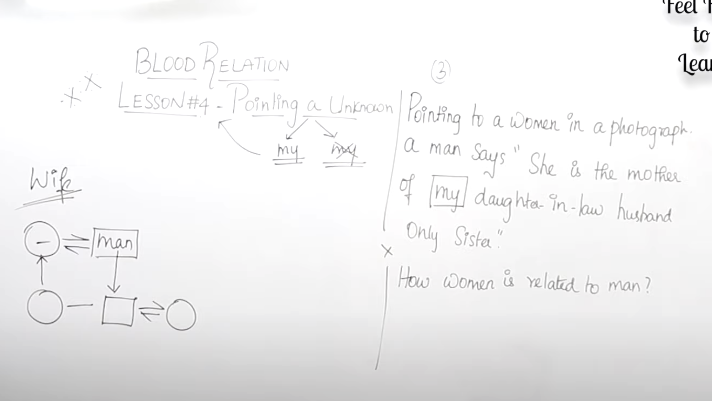 Feel F
to
Lear
BLOOD RELATION
LESSON #4 - Pointing a Unknown
my my
Wife
man
3
Pointing to a women in a photograph.
a man says " She is the mother
of my daughter-in-law husband
Only Sister."
How women is related to man?